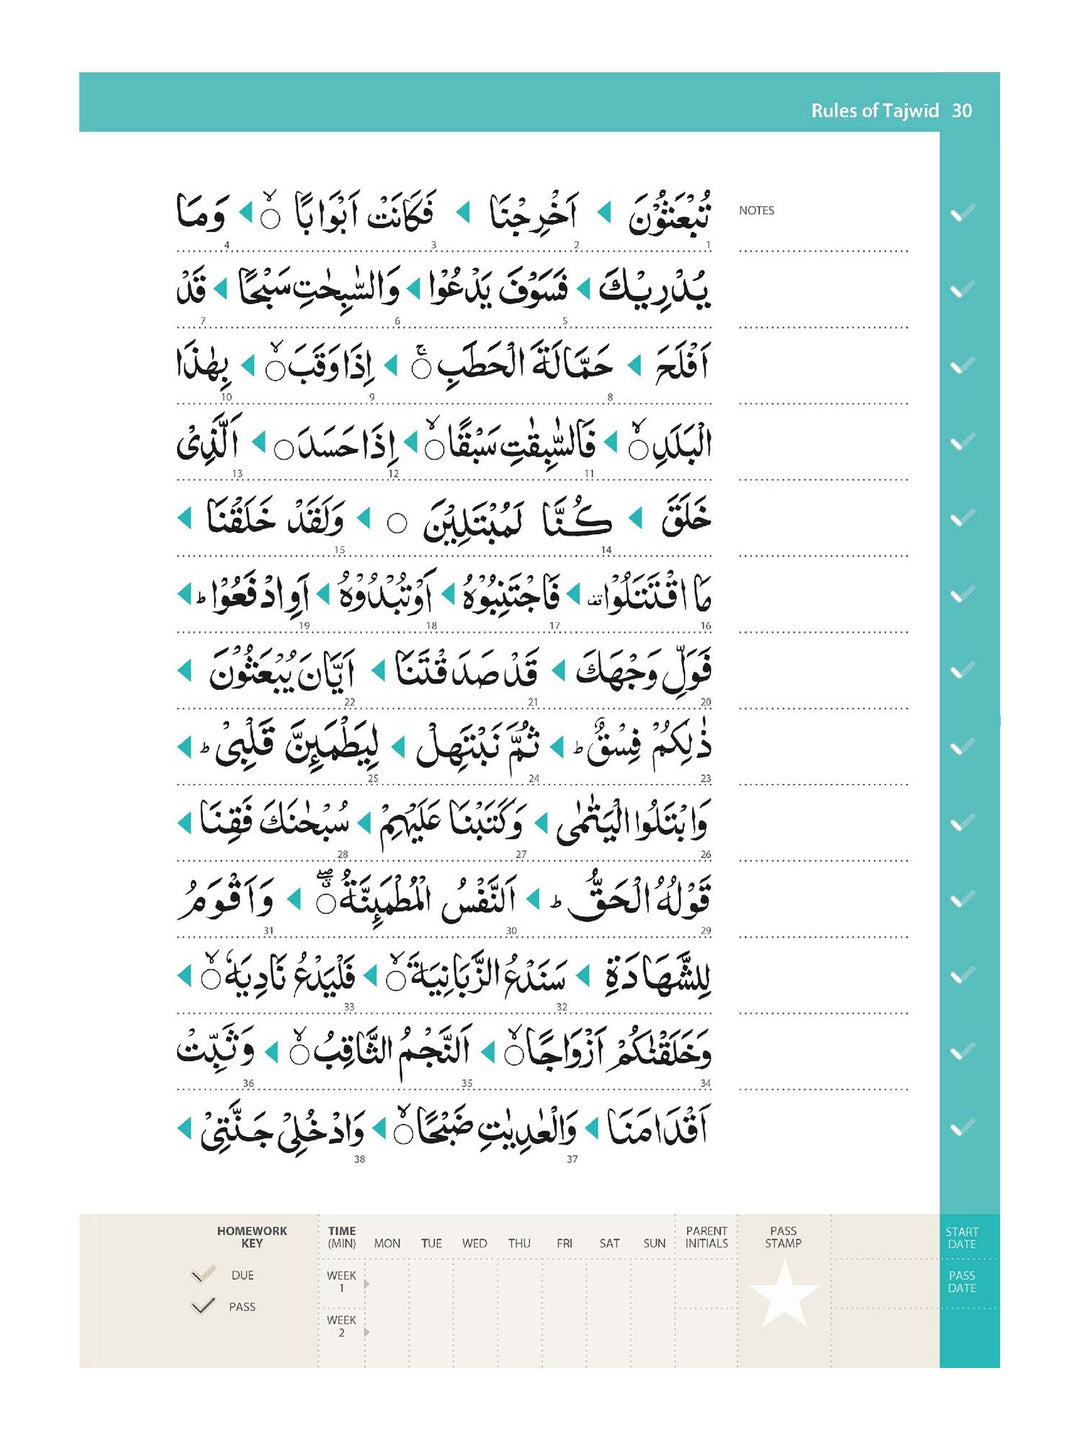 Rules of Tajwid 30
تُبْعَثُوْنَ ◀ اَخْرِجْنَا ◀ فَكَانَتْ اَبْوَابًا ۙ○ ◀ وَمَا
NOTES
1 2 3 4
يُدْرِيْكَ ◀ فَسَوْفَ يَدْعُوْا ◀ وَالسّٰبِحٰتِ سَبْحًا ◀ قَدْ
5 6 7
اَفْلَحَ ◀ حَمَّالَةَ الْحَطَبِ ۚ○ ◀ اِذَا وَقَبَ ۙ○ ◀ بِهٰذَا
8 9 10
الْبَلَدِ ۙ○ ◀ فَالسّٰبِقٰتِ سَبْقًا ۙ○ ◀ اِذَا حَسَدَ ○ ◀ اَلَّذِىْ
11 12 13
خَلَقَ ◀ كُنَّا لَمُبْتَلِيْنَ ○ ◀ وَلَقَدْ خَلَقْنَا ◀
14 15
مَا اقْتَتَلُوْا قف ◀ فَاجْتَنِبُوْهُ ◀ اَوْ تُبْدُوْهُ ◀ اَوِ ادْفَعُوْا ؕ ◀
16 17 18 19
فَوَلِّ وَجْهَكَ ◀ قَدْ صَدَقْتَنَا ◀ اَيَّانَ يُبْعَثُوْنَ ◀
20 21 22
ذٰلِكُمْ فِسْقٌ ؕ ◀ ثُمَّ نَبْتَهِلْ ◀ لِيَطْمَئِنَّ قَلْبِىْ ؕ ◀
23 24 25
وَابْتَلُوا الْيَتٰمٰى ◀ وَكَتَبْنَا عَلَيْهِمْ ◀ سُبْحٰنَكَ فَقِنَا ◀
26 27 28
قَوْلُهُ الْحَقُّ ؕ ◀ اَلنَّفْسُ الْمُطْمَئِنَّةُ ۖۗ○ ◀ وَاَقْوَمُ
29 30 31
لِلشَّهَادَةِ ◀ سَنَدْعُ الزَّبَانِيَةَ ۙ○ ◀ فَلْيَدْعُ نَادِيَهٗ ۙ○ ◀
32 33
وَخَلَقْنٰكُمْ اَزْوَاجًا ۙ○ ◀ اَلنَّجْمُ الثَّاقِبُ ۙ○ ◀ وَثَبِّتْ
34 35 36
اَقْدَامَنَا ◀ وَالْعٰدِيٰتِ ضَبْحًا ۙ○ ◀ وَادْخُلِىْ جَنَّتِىْ ◀
37 38
HOMEWORK KEY
DUE
PASS
TIME (MIN) MON TUE WED THU FRI SAT SUN
WEEK 1
WEEK 2
PARENT INITIALS
PASS STAMP
START DATE
PASS DATE